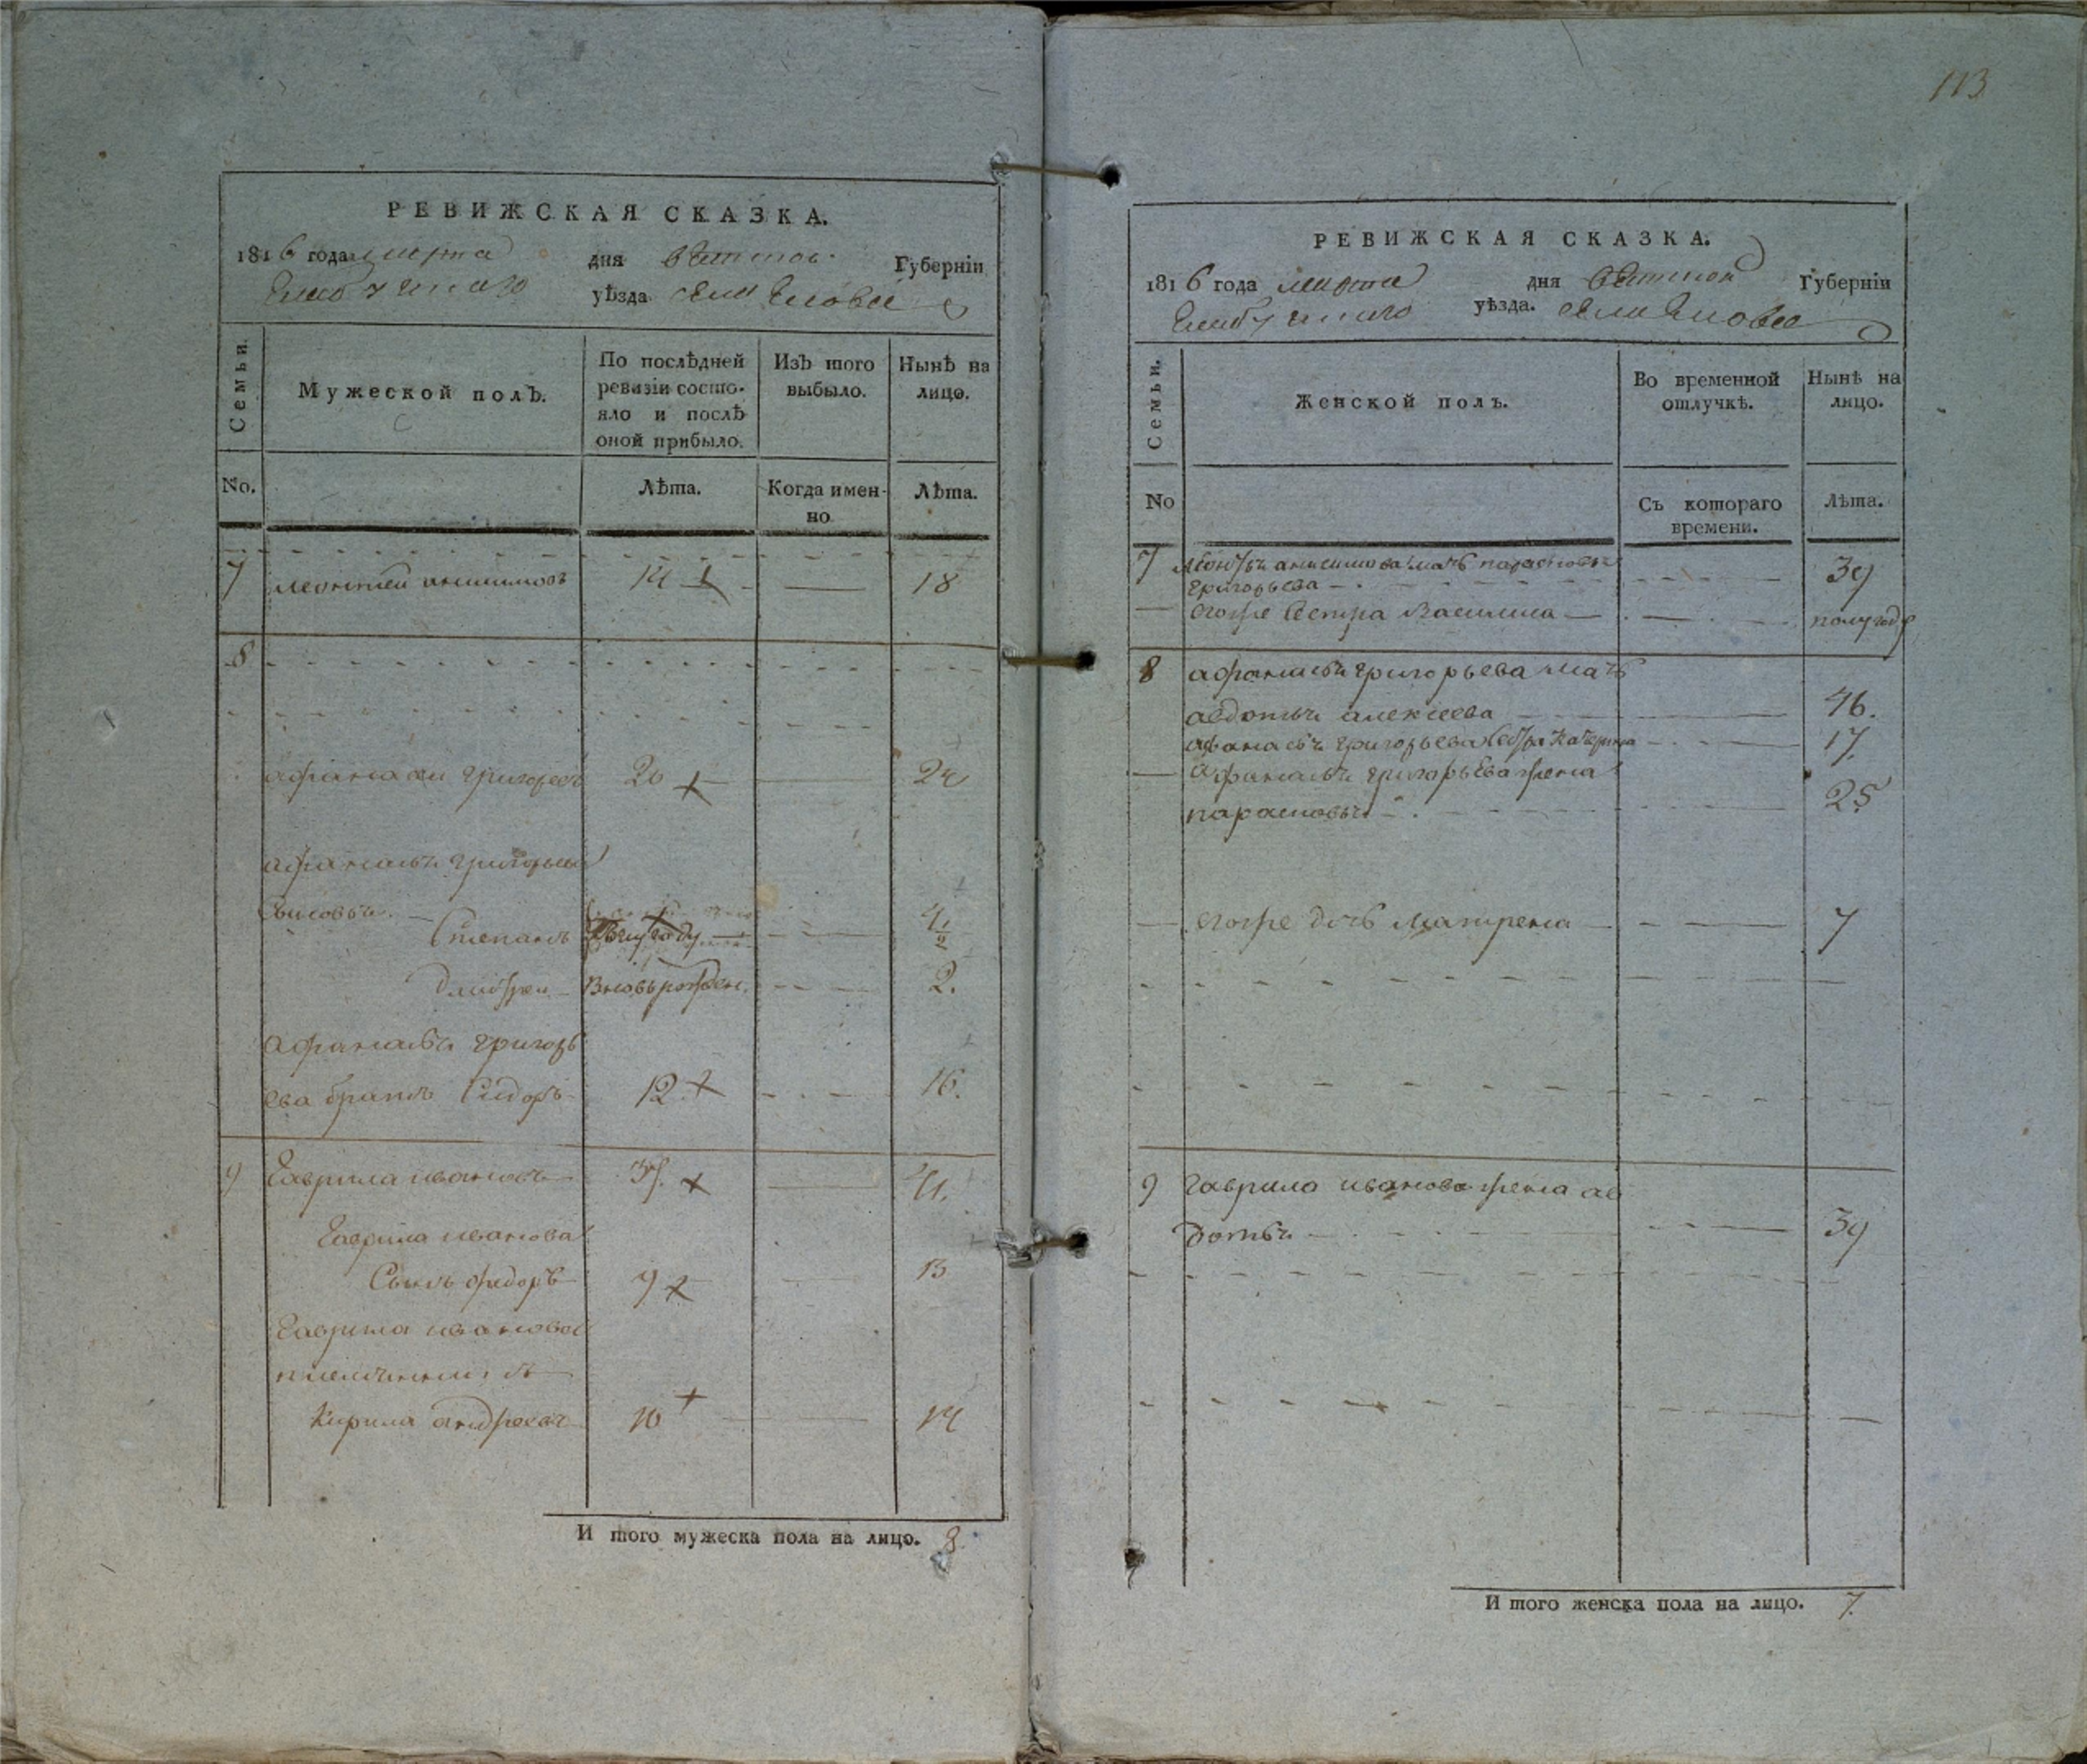 113
РЕВИЖСКАЯ СКАЗКА.
1816 года марта дня вятской Губерніи
Елабужскаго уѣзда села Еловвѣ
Семьи.
Мужеской полъ.
По послѣдней ревизіи состояло и послѣ оной прибыло.
Изъ того выбыло.
Нынѣ на лицо.
No.
Лѣта.
Когда именно
Лѣта.
7 леонтей анисимовъ 14 18
8
афанасеи григорьевъ 20 24
афанасья григорьева
сыновья.
Степанъ 4 1/2
дмитреи вновьрожден. 2.
афанасья григорь
ева братъ Сидоръ 12 16.
9 Гаврила ивановъ 37. 41.
Гаврила иванова
Сынъ федоръ 9 13
Гаврила иванова
племянникъ
Кирила андреевъ 10 14
И того мужеска пола на лицо. 8
РЕВИЖСКАЯ СКАЗКА.
1816 года марта дня вятской Губерніи
уѣзда. села
Семьи.
Женской полъ.
Во временной отлучкѣ.
Нынѣ на лицо.
No
Съ котораго времени.
Лѣта.
7 леонтья анисимова мать парасковья
григорьева 39
егоже сестра Василиса полугоду
8 афанасья григорьева мать
авдотья алексеева 46.
афанасья григорьева сестра катерина 17.
афанасья григорьева жена
парасковья 25
егоже дочь матрена 7
9 гаврила иванова жена ав
дотья 39
И того женска пола на лицо. 7.